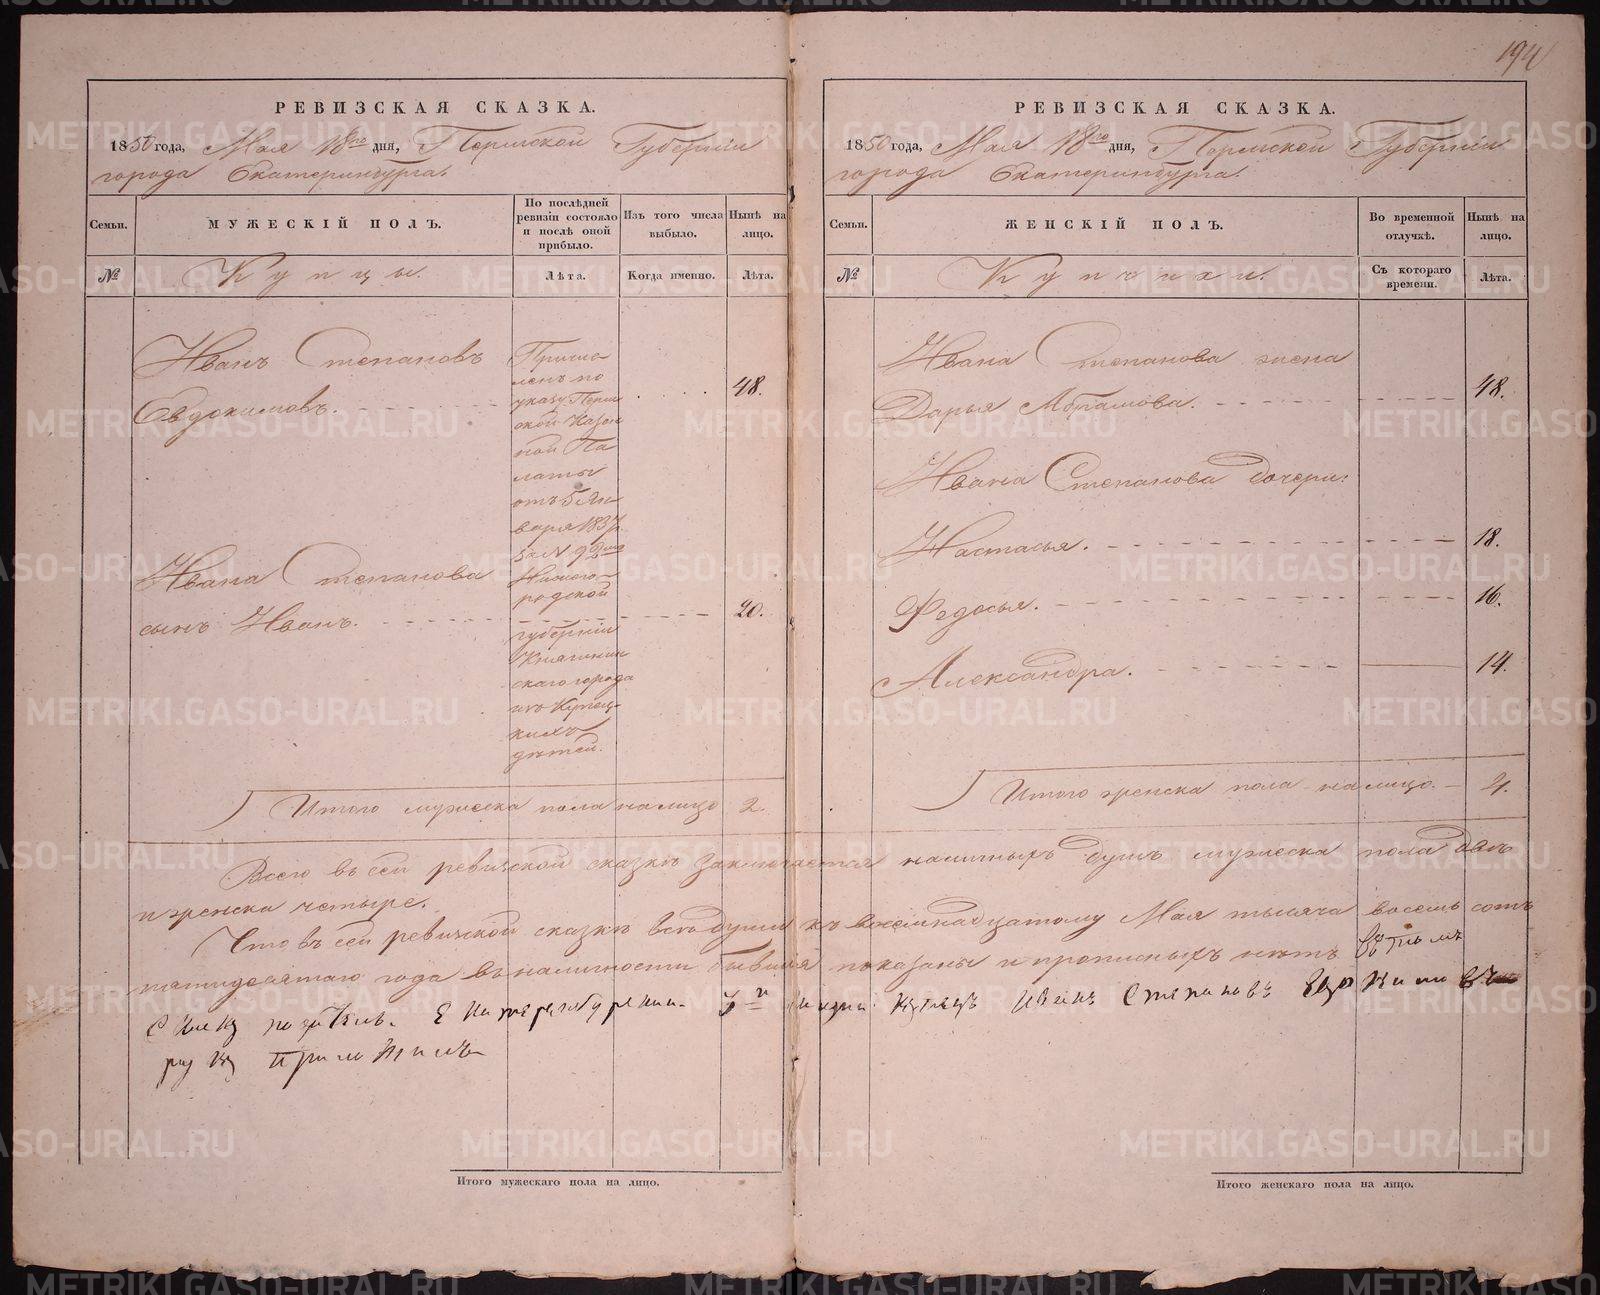 194
РЕВИЗСКАЯ СКАЗКА.
1850 года, Мая 18го дня, Пермской Губернiи
города Екатеринбурга.
Семьи.
МУЖЕСКIЙ ПОЛЪ.
По послѣдней
ревизiи состояло
и послѣ оной
прибыло.
Изъ того числа
выбыло.
Нынѣ на
лицо.
№
Купцы.
Лѣта.
Когда именно.
Лѣта.
Иванъ Степановъ
Евдокимовъ.
48.
Причи
сленъ по
указу Перм
ской Казен
ной Па
латы
отъ 5 Ян
варя 1837
за N 92
Нижего-
родской
губернiи
Княгинин
скаго города
изъ Купец-
кихъ
дѣтей.
Ивана Степанова
сынъ Иванъ.
20.
Итого мужеска пола на лицо 2.
РЕВИЗСКАЯ СКАЗКА.
1850 года, Мая 18го дня, Пермской Губернiи
города Екатеринбурга.
Семьи.
ЖЕНСКIЙ ПОЛЪ.
Во временной
отлучкѣ.
Нынѣ на
лицо.
№
Купчихи.
Съ котораго
времени.
Лѣта.
Ивана Степанова жена
Дарья Абрамова.
48.
Ивана Степанова дочери:
Настасья.
18.
Федосья.
16.
Александра.
14.
Итого женска пола на лицо. 4.
Всего въ сей ревизской сказкѣ заключается наличныхъ душъ мужеска пола двѣ
и женска четыре.
Что въ сей ревизской сказкѣ всѣ души къ восемнадцатому Мая тысяча восемь сотъ
пятидесятаго года въ наличности бывшiя показаны и прописныхъ нѣтъ
Екатеринбургскии 3й купецъ Иванъ Степановъ Евдокимовъ
руку приложилъ
Итого мужескаго пола на лицо.
Итого женскаго пола на лицо.
METRIKI.GASO-URAL.RU